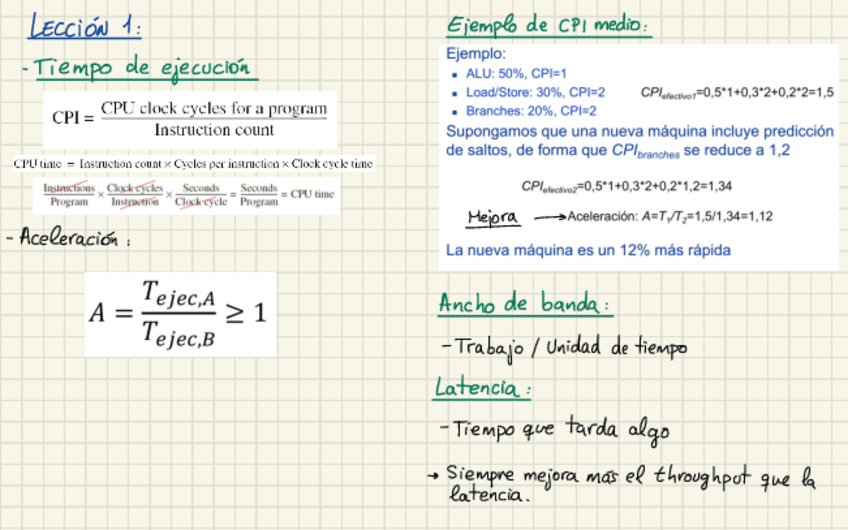 LECCIÓN 1:
- Tiempo de ejecución
CPI = CPU clock cycles for a program / Instruction count
CPU time = Instruction count × Cycles per instruction × Clock cycle time
Instructions / Program × Clock cycles / Instruction × Seconds / Clock cycle = Seconds / Program = CPU time
- Aceleración:
A = T_ejec,A / T_ejec,B ≥ 1
Ejemplo de CPI medio:
Ejemplo:
▪ ALU: 50%, CPI=1
▪ Load/Store: 30%, CPI=2
CPI_efectivo1=0,5*1+0,3*2+0,2*2=1,5
▪ Branches: 20%, CPI=2
Supongamos que una nueva máquina incluye predicción
de saltos, de forma que CPI_branches se reduce a 1,2
CPI_efectivo2=0,5*1+0,3*2+0,2*1,2=1,34
Mejora → Aceleración: A=T1/T2=1,5/1,34=1,12
La nueva máquina es un 12% más rápida
Ancho de banda:
- Trabajo / Unidad de tiempo
Latencia:
- Tiempo que tarda algo
→ Siempre mejora más el throughput que la
latencia.